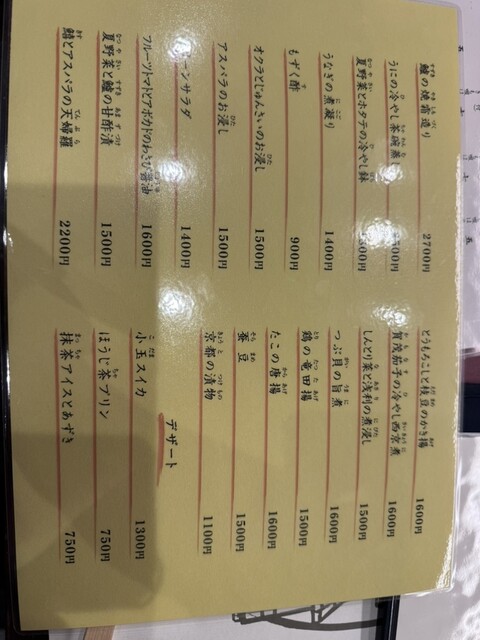 鱸の焼霜造り 2700円
うにの冷やし茶碗蒸し 500円
夏野菜とホタテの冷やし鉢 300円
うなぎの煮凝り 1400円
もずく酢 900円
オクラとじゅんさいのお浸し 1500円
アスパラのお浸し 1500円
ーンサラダ 1400円
フルーツトマトとアボカドのわさび醤油 1600円
夏野菜と鱸の甘酢漬 1500円
鱚とアスパラの天婦羅 2200円
とうもろこしと枝豆のかき揚 1600円
賀茂茄子の冷やし西京煮 1600円
しんとり菜と浅利の煮浸し 1500円
つぶ貝の旨煮 1600円
鶏の竜田揚 1500円
たこの唐揚 1600円
蚕豆 1500円
京都の漬物 1100円
デザート
小玉スイカ 1300円
ほうじ茶プリン 750円
抹茶アイスとあずき 750円